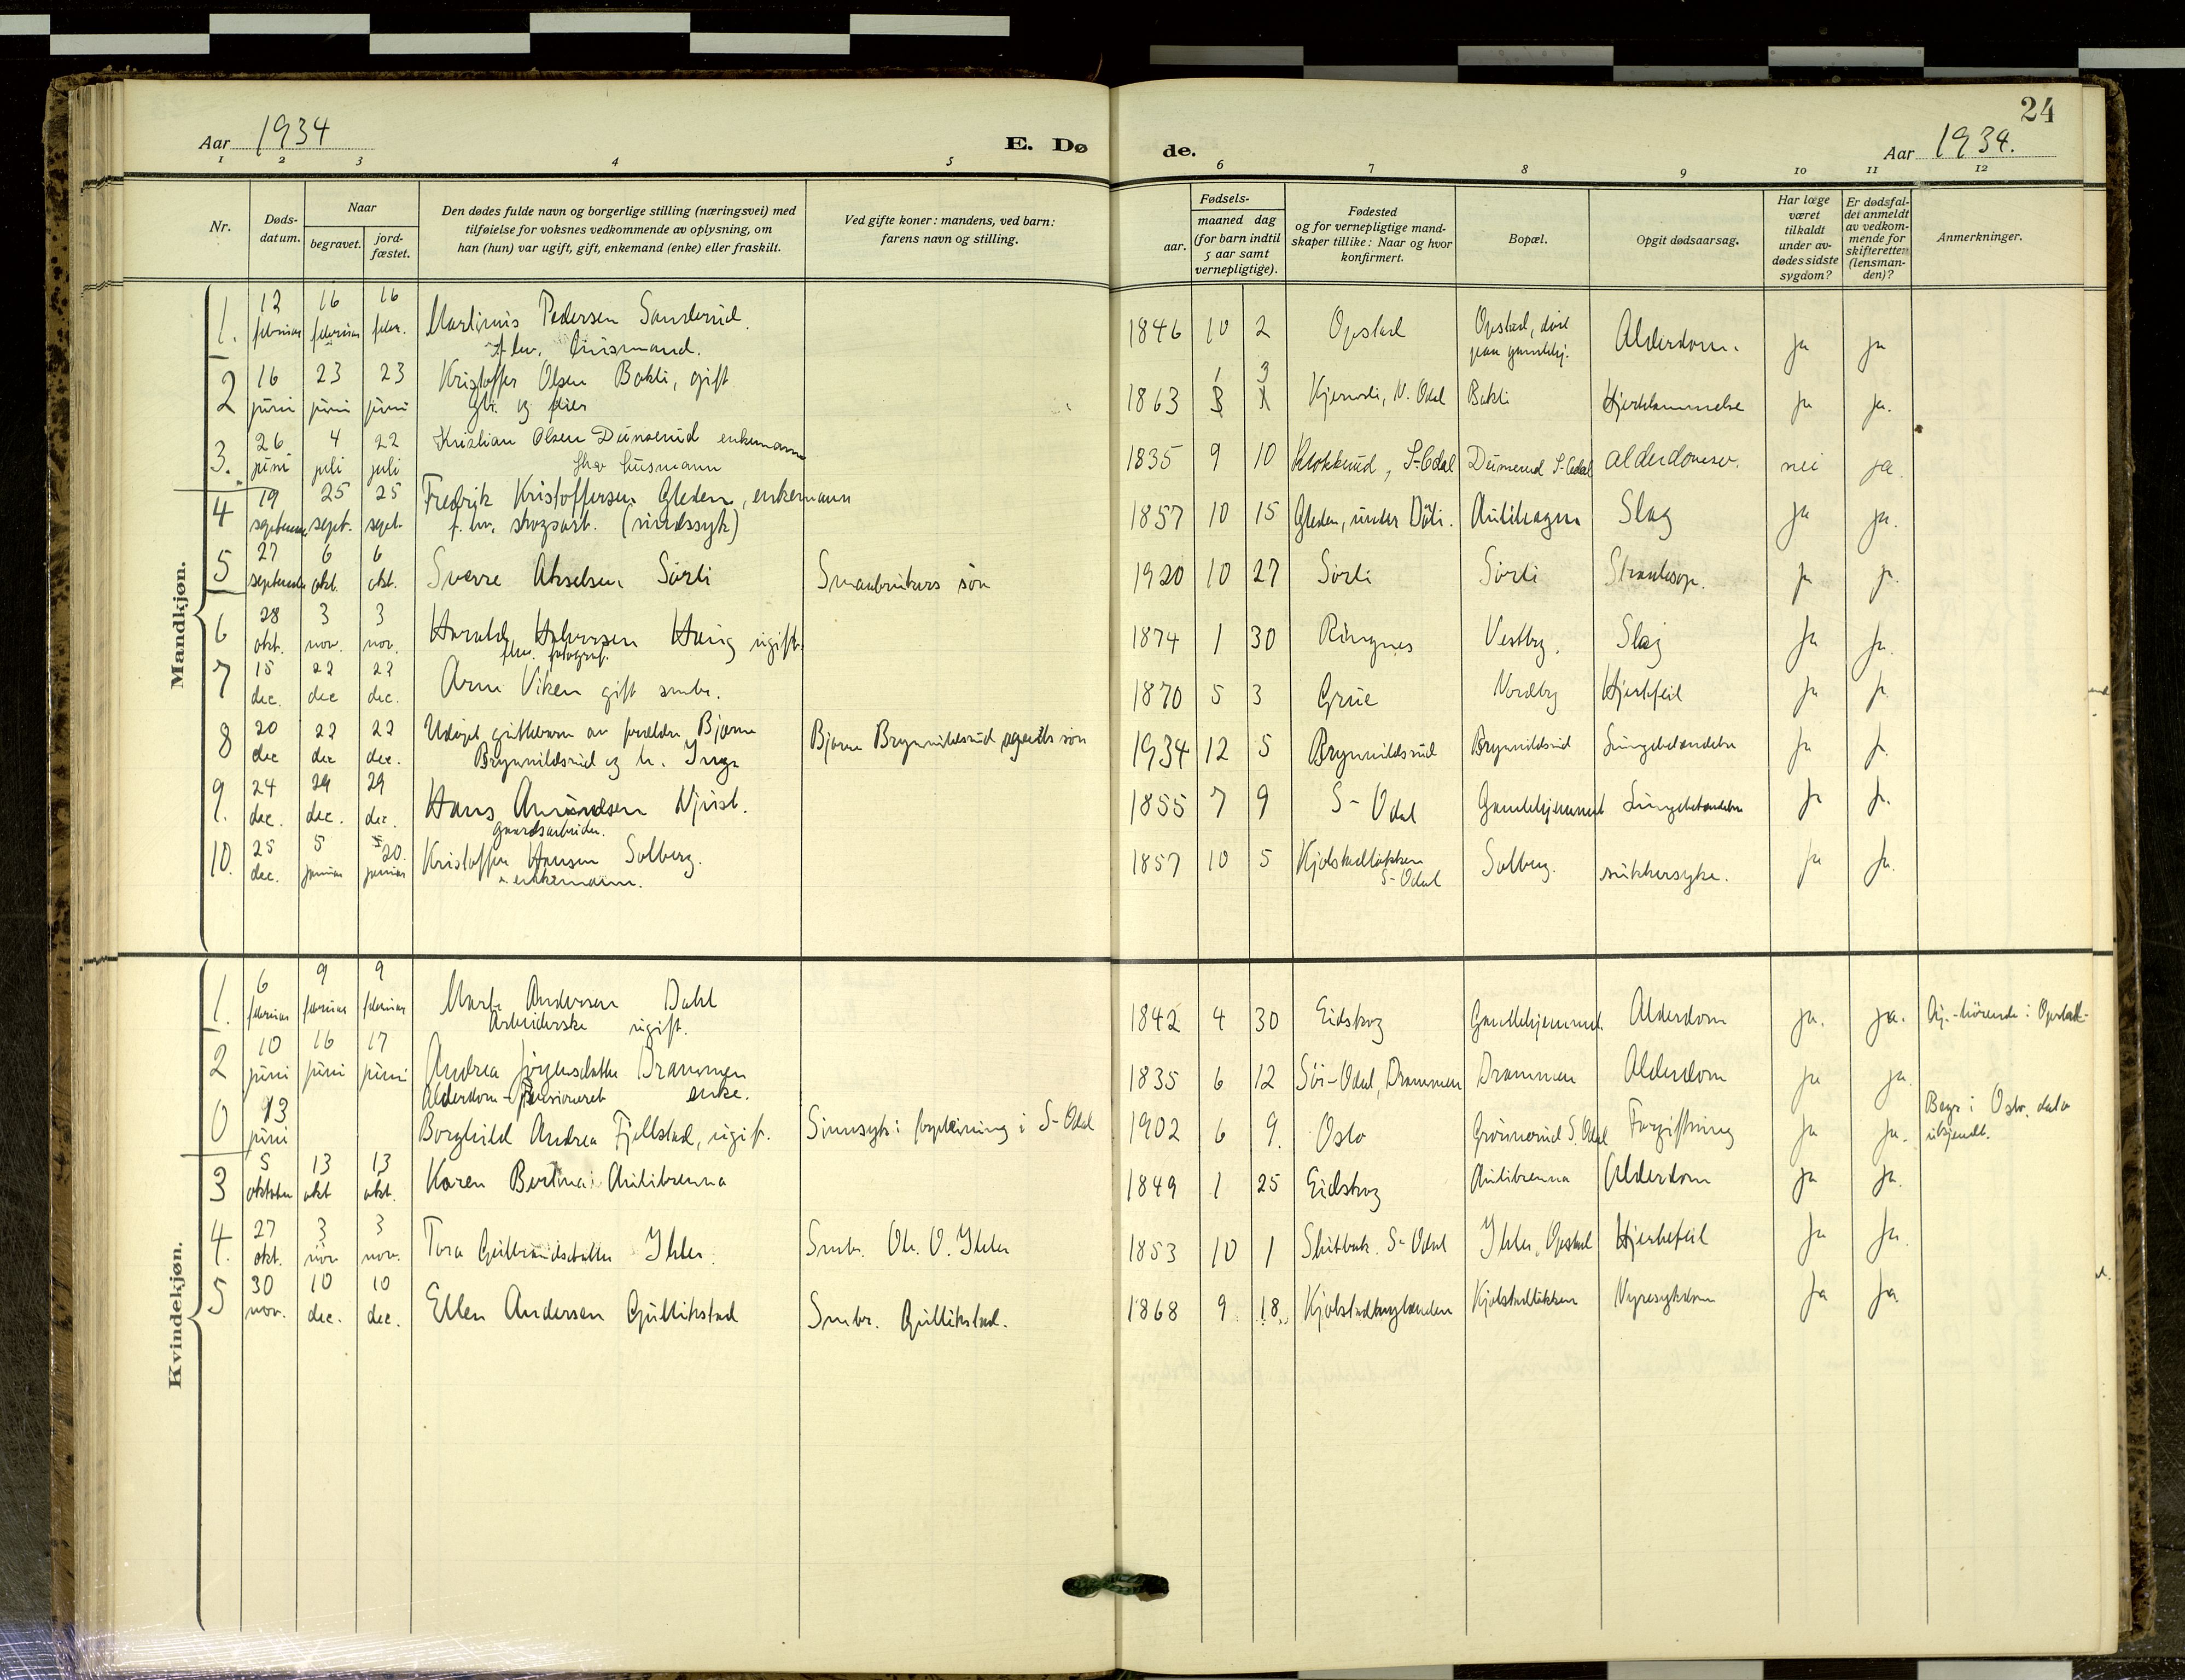 24
Aar 1934 E. Dø de. Aar 1934.
1 2 3 4 5 6 7 8 9 10 11 12
Nr. Døds-datum. Naar begravet. jord-fæstet. Den dødes fulde navn og borgerlige stilling (næringsvei) med tilføielse for voksnes vedkommende av oplysning, om han (hun) var ugift, gift, enkemand (enke) eller fraskilt. Ved gifte koner: mandens, ved barn: farens navn og stilling. Fødsels- aar. maaned dag (for barn indtil 5 aar samt vernepligtige). Fødested og for vernepligtige mand-skaper tillike: Naar og hvor konfirmert. Bopæl. Opgit dødsaarsag. Har læge været tilkaldt under av-dødes sidste sygdom? Er dødsfal-det anmeldt av vedkom-mende for skifteretten (lensman-den)? Anmerkninger.
Mandkjøn.
1. 12 februar 16 februar 16 febr. Martinus Pedersen Sanderud. 1846 10 2 Opstad Opstad, død paa gamlehj. Alderdom. ja ja
f. hv. husmand.
2 16 juni 23 juni 23 juni Kristoffer Olsen Bakli, gift 1863 1 3 N. Odal Bakli Hjertelammelse ja ja.
3. 26 juni 4 juli 22 juli Kristian Olsen Dunserud enkemann 1835 9 10 Klokkerud, S-Odal S-Odal nei ja.
husmann
4 19 september 25 sept. 25 sept. Fredrik Kristoffersen Gleden, enkemann 1857 10 15 Gleden, under Slag ja ja.
f. hv. skogsarb. (sindssyk)
5 27 september 6 okt. 6 okt. Sverre Akselsen Sörli Smaabrukers sön 1920 10 27 Sörli Sörli ja ja.
6 28 okt. 3 nov. 3 nov. Harald Halvorsen Haug ugift. 1874 1 30 Ringnes Vestby. Slag ja ja.
fotograf.
7 15 dec. 22 dec 22 dec. Arne Viken gift smbr. 1870 5 3 Grue Nordby Hjertefeil ja ja.
8 20 dec 22 dec 22 dec. Udöpt guttebarn av forældre Bjarne Bjarne Brynnildsrud agents sön 1934 12 5 Brynnildsrud Brynnildsrud Lungebetændelse ja ja.
Brynnildsrud og h. Inga
9. 24 dec. 29 dec. 29 dec. Hans Amundsen Njust. 1855 7 9 S-Odal Gamlehjemmet Lungebetændelse ja ja.
gaardsarbeider.
10. 25 dec. 5 januar 20. januar Kristoffer Hansen Solberg. 1857 10 5 Kjölstadlökken S-Odal Solberg. sukkersyke. ja ja.
enkemann.
Kvindekjøn.
1. 6 februar 9 februar 9 februar Marte Andersen Dahl 1842 4 30 Eidskog Gamlehjemmet Alderdom ja. ja. hörende i Opstad
Arbeiderske ugift.
2 10 juni 16 juni 17 juni Andrea Jörgensdatter Drammen 1835 6 12 Sör-Odal, Drammen Drammen Alderdom ja ja
Alderdom-Pensioneret enke.
0 13 juni Borghild Andrea Fjellstad, ugift. Sinnsyk i forpleining i S-Odal 1902 6 9. Oslo Grönnerud S. Odal Forgiftning ja ja. Begr i Oslo, dato ukjendt.
3 5 oktober 13 okt 13 okt. Karen Bertine Aulibrenna 1849 1 25 Eidskog Aulibrenna Alderdom ja ja.
4. 27 okt. 3 nov 3 nov. Tora Gulbrandsdatter Ihler. Smbr. Ole O. Ihler 1853 10 1 S-Odal Ihler, Opstad Hjertefeil ja ja.
5 30 nov. 10 dec. 10 dec. Ellen Andersen Gullikstad Smbr. Gullikstad. 1868 9 18. Kjölstadlökken Nyresykdom ja ja.